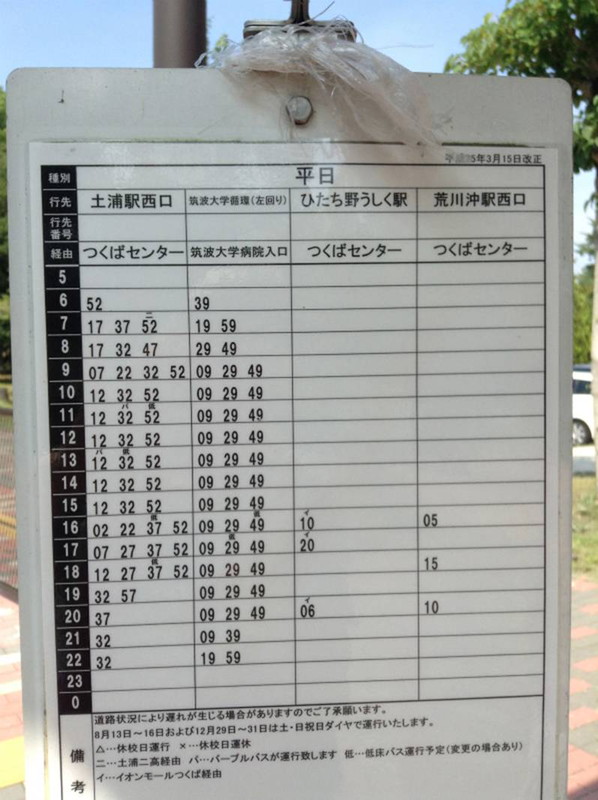 平成25年3月15日改正
種別 平日
行先 土浦駅西口 筑波大学循環(左回り) ひたち野うしく駅 荒川沖駅西口
行先番号
経由 つくばセンター 筑波大学病院入口 つくばセンター つくばセンター
5
6 52 39
7 17 37 ニ52 19 59
8 17 32 47 29 49
9 07 22 32 52 09 29 49
10 12 32 52 09 29 49
11 12 パ32 低52 09 29 49
12 12 32 52 09 29 49
13 パ12 低32 52 09 29 49
14 12 32 52 09 29 49
15 12 32 52 09 29 49
16 02 22 低37 52 09 29 低49 イ10 05
17 07 27 37 52 09 低29 49 イ20
18 12 27 低37 52 09 29 49 15
19 32 57 09 29 49
20 37 09 29 49 イ06 10
21 32 09 39
22 32 19 59
23
0
備考
道路状況により遅れが生じる場合がありますのでご了承願います。
8月13日~16日および12月29日~31日は土・日祝日ダイヤで運行いたします。
△…休校日運行 ×…休校日運休
二…土浦二高経由 パ…パープルバスが運行致します 低…低床バス運行予定(変更の場合あり)
イ…イオンモールつくば経由